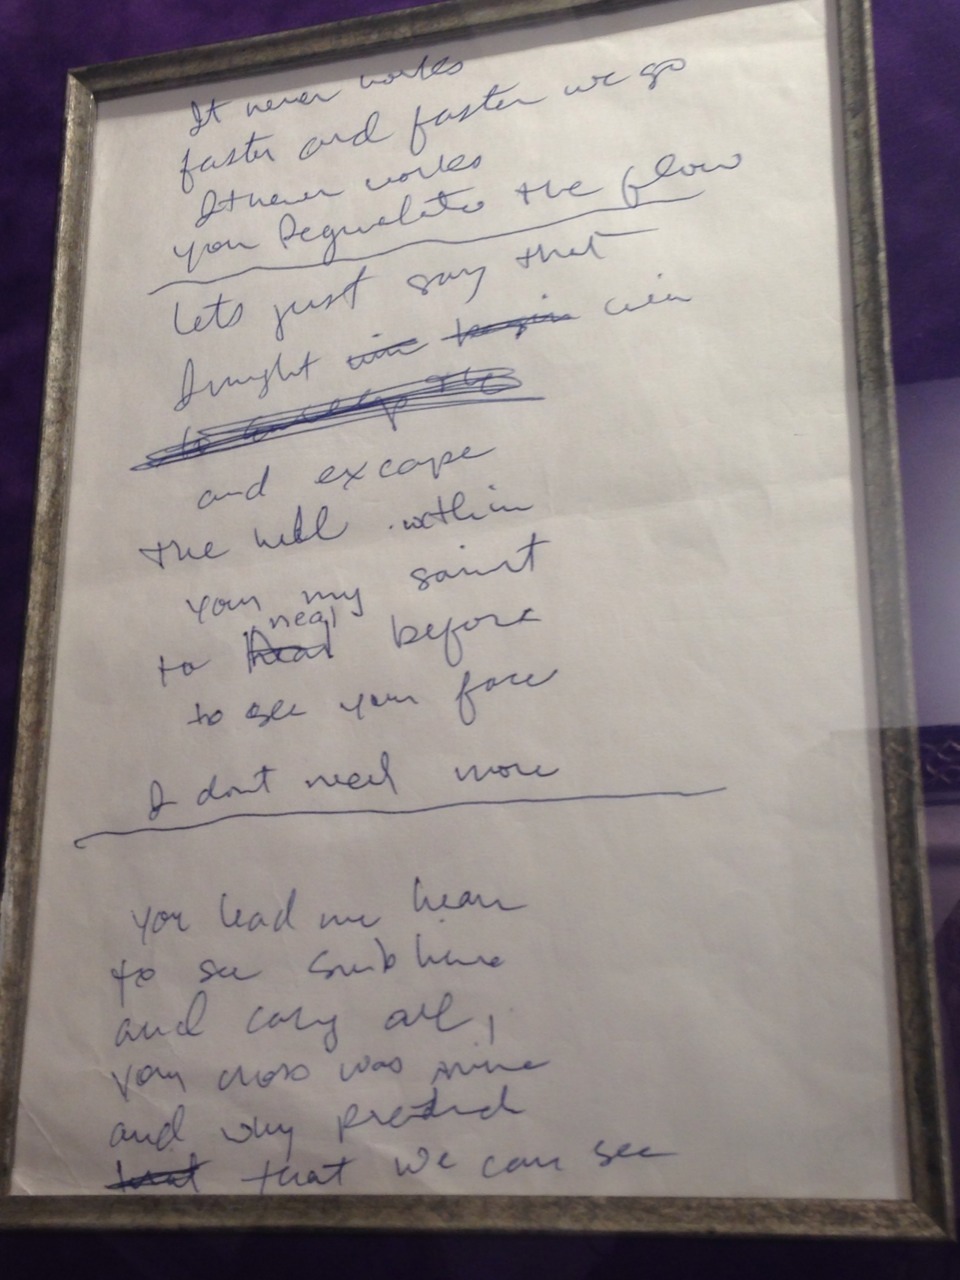 It never works
faster and faster we go
It never works
you Regulate the flow
lets just say that
I might win
and excape
the hell within
Your my saint
to neal before
to see your face
I dont need more
You lead me hear
to see sublime
and cary all,
your cross was mine
and why pretend
that that we can see